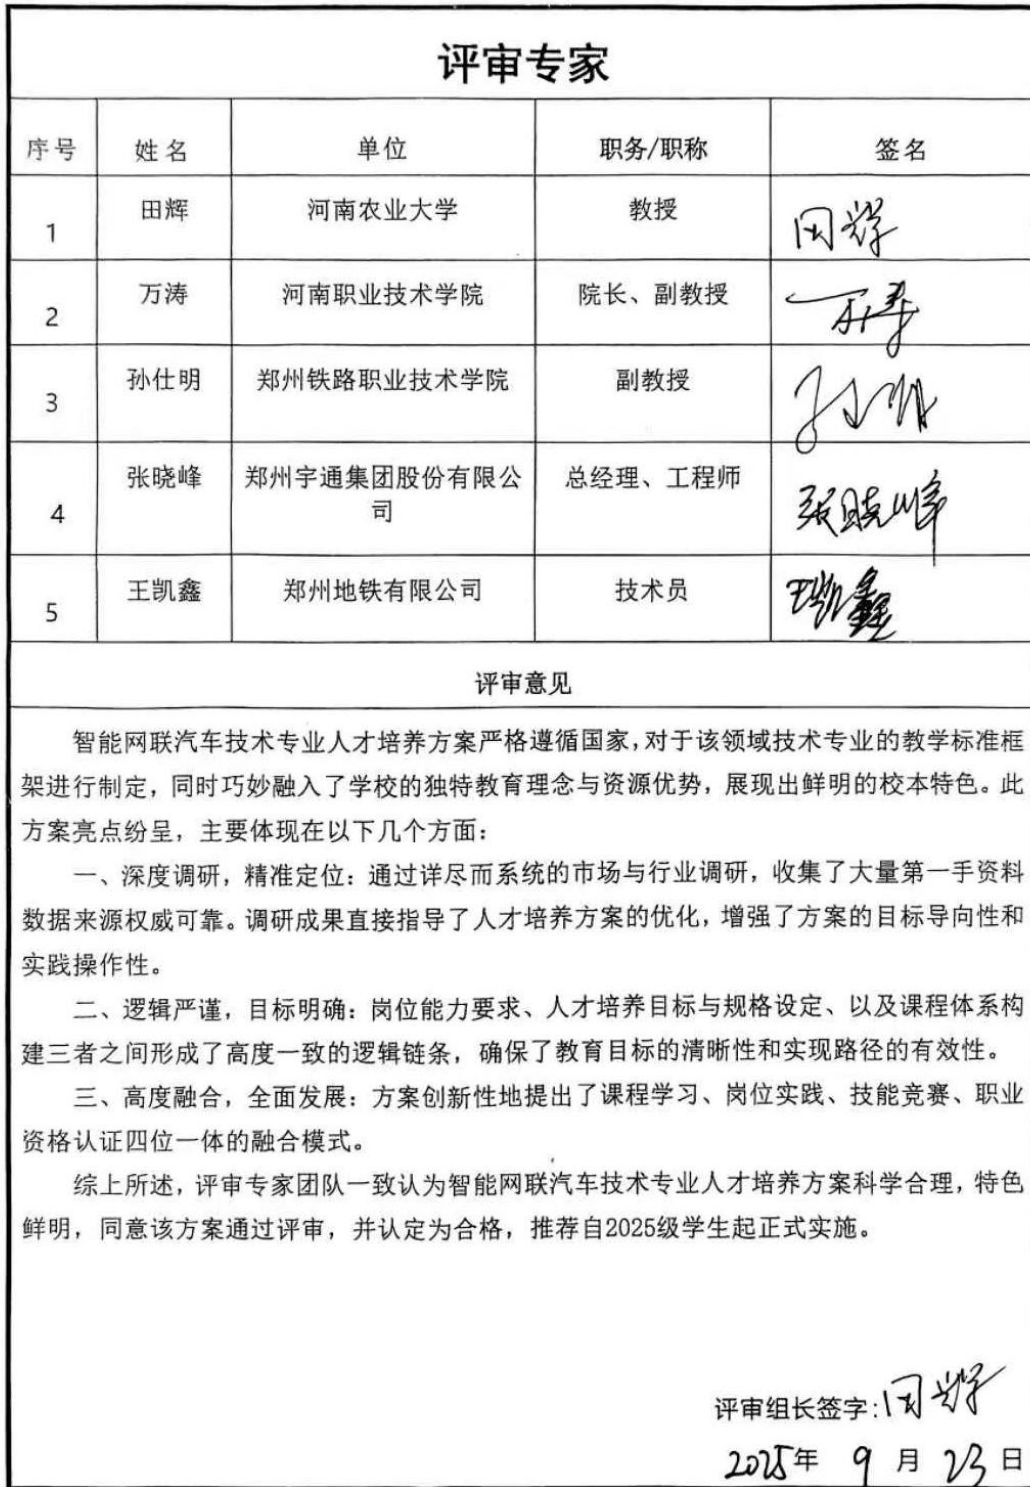 评审专家
序号 姓名 单位 职务/职称 签名
1 田辉 河南农业大学 教授 田辉
2 万涛 河南职业技术学院 院长、副教授 万涛
3 孙仕明 郑州铁路职业技术学院 副教授 孙仕明
4 张晓峰 郑州宇通集团股份有限公 总经理、工程师 张晓峰
司
5 王凯鑫 郑州地铁有限公司 技术员 王凯鑫
评审意见
智能网联汽车技术专业人才培养方案严格遵循国家,对于该领域技术专业的教学标准框
架进行制定，同时巧妙融入了学校的独特教育理念与资源优势，展现出鲜明的校本特色。此
方案亮点纷呈，主要体现在以下几个方面：
一、深度调研，精准定位：通过详尽而系统的市场与行业调研，收集了大量第一手资料
数据来源权威可靠。调研成果直接指导了人才培养方案的优化，增强了方案的目标导向性和
实践操作性。
二、逻辑严谨，目标明确：岗位能力要求、人才培养目标与规格设定、以及课程体系构
建三者之间形成了高度一致的逻辑链条，确保了教育目标的清晰性和实现路径的有效性。
三、高度融合，全面发展：方案创新性地提出了课程学习、岗位实践、技能竞赛、职业
资格认证四位一体的融合模式。
综上所述，评审专家团队一致认为智能网联汽车技术专业人才培养方案科学合理，特色
鲜明，同意该方案通过评审，并认定为合格，推荐自2025级学生起正式实施。
评审组长签字:田辉
2025年 9 月 23 日